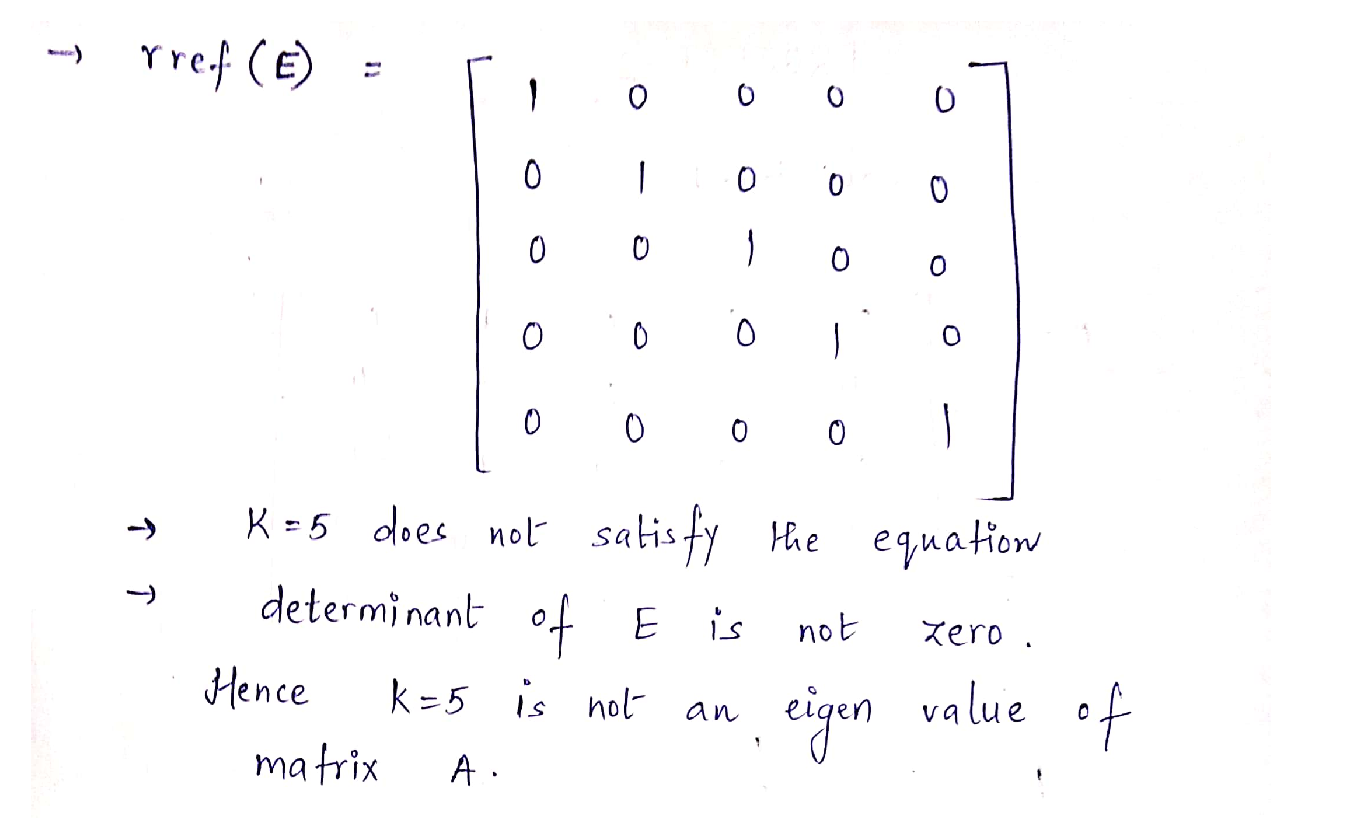 → rref (E) = 1 0 0 0 0
0 1 0 0 0
0 0 1 0 0
0 0 0 1 0
0 0 0 0 1
→ K = 5 does not satisfy the equation
→ determinant of E is not zero.
Hence k = 5 is not an eigen value of
matrix A.